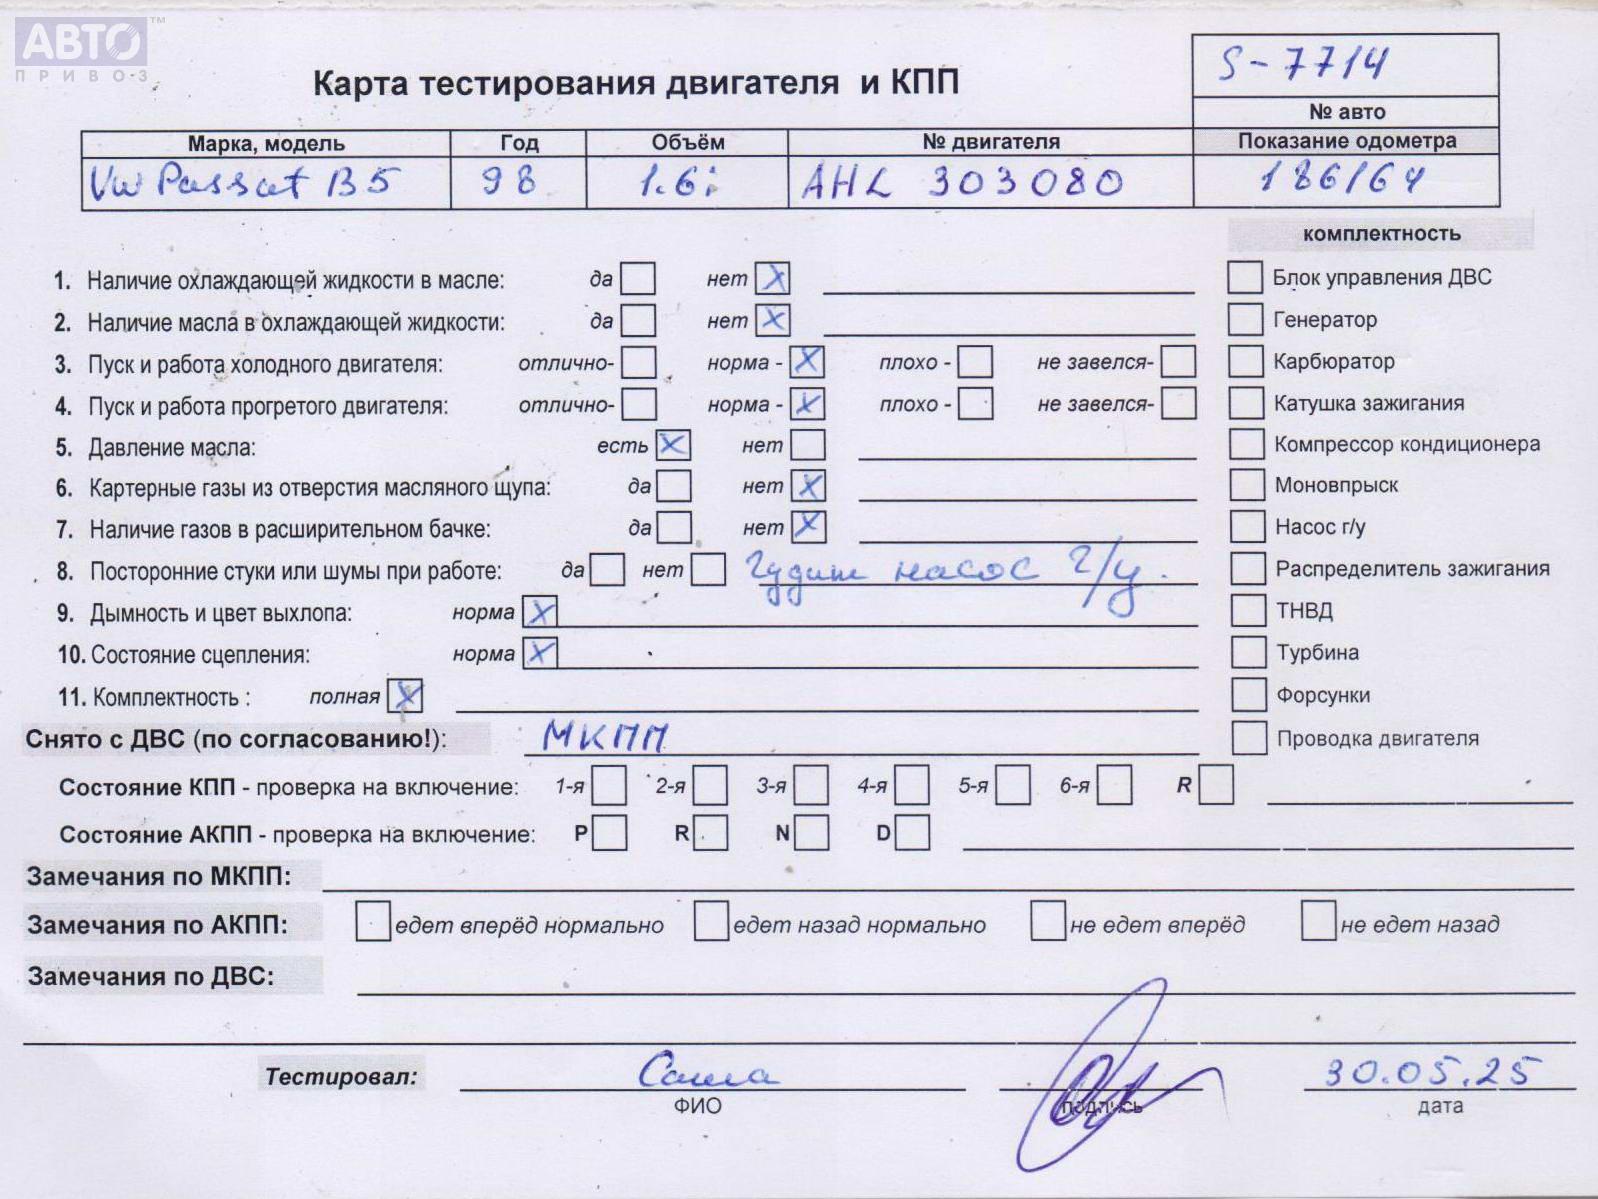 АВТО™
ПРИВОЗ
S-7714
Карта тестирования двигателя и КПП
№ авто
Марка, модель Год Объём № двигателя Показание одометра
VW Passat B5 98 1.6i AHL 303080 186164
комплектность
1. Наличие охлаждающей жидкости в масле: да нет X Блок управления ДВС
2. Наличие масла в охлаждающей жидкости: да нет X Генератор
3. Пуск и работа холодного двигателя: отлично- норма - X плохо - не завелся- Карбюратор
4. Пуск и работа прогретого двигателя: отлично- норма - X плохо - не завелся- Катушка зажигания
5. Давление масла: есть X нет Компрессор кондиционера
6. Картерные газы из отверстия масляного щупа: да нет X Моновпрыск
7. Наличие газов в расширительном бачке: да нет X Насос г/у
8. Посторонние стуки или шумы при работе: да нет Гудит насос г/у. Распределитель зажигания
9. Дымность и цвет выхлопа: норма X ТНВД
10. Состояние сцепления: норма X Турбина
11. Комплектность : полная X Форсунки
Снято с ДВС (по согласованию!): МКПП Проводка двигателя
Состояние КПП - проверка на включение: 1-я 2-я 3-я 4-я 5-я 6-я R
Состояние АКПП - проверка на включение: P R N D
Замечания по МКПП:
Замечания по АКПП: едет вперёд нормально едет назад нормально не едет вперёд не едет назад
Замечания по ДВС:
Тестировал: Саша 30.05.25
ФИО подпись дата